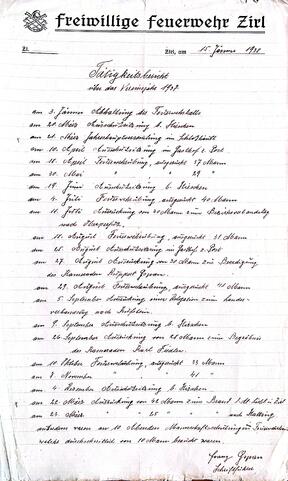 Freiwillige Feuerwehr Zirl
Zl. Zirl, am 15 Jänner 1938
Tätigkeitsbericht
über das Vereinsjahr 1937
am 3. Jänner Abhaltung des Feuerwehrballs
am 20 März Ausschußsitzung b. Hirschen
am 21. März Jahreshauptversammlung im
am 10 April Ausschußsitzung im Gasthof z. Post
am 18 April Feuerwehrübung, ausgerückt 37 Mann
am 30 Mai " " 29 "
am 19 Juni Ausschußsitzung b. Hirschen
am 4 Juli Feuerwehrübung ausgerückt 40 Mann
am 11 Juli Ausrückung von Mann zum Bezirksverbandstag
nach
am 15 August Feuerwehrübung, ausgerückt 31 Mann
am 25 August Ausschußsitzung im Gasthof z. Post
am 27 August Ausrückung von 30 Mann zur Beerdigung
des Kameraden
am 29. August Feuerwehrübung, ausgerückt 41 Mann
am 5 September Ausrückung einer Delegation zum Landes-
verbandstag nach Kufstein
am 9 September Ausschußsitzung b. Hirschen
am 26 September Ausrückung von Mann zum Begräbnis
des Kameraden Karl
am 10 Oktober Feuerwehrübung, ausgerückt 33 Mann
am 7 November " " 41 "
am 4 Dezember Ausschußsitzung b. Hirschen
am 22 März Ausrückung von 42 Mann zum Brand in Zirl
am 23. März " " 25 " " nach
außerdem waren an 10 Abenden Mannschaftsübungen im
welche durchschnittlich von 10 Mann besucht waren.
Franz
Schriftführer